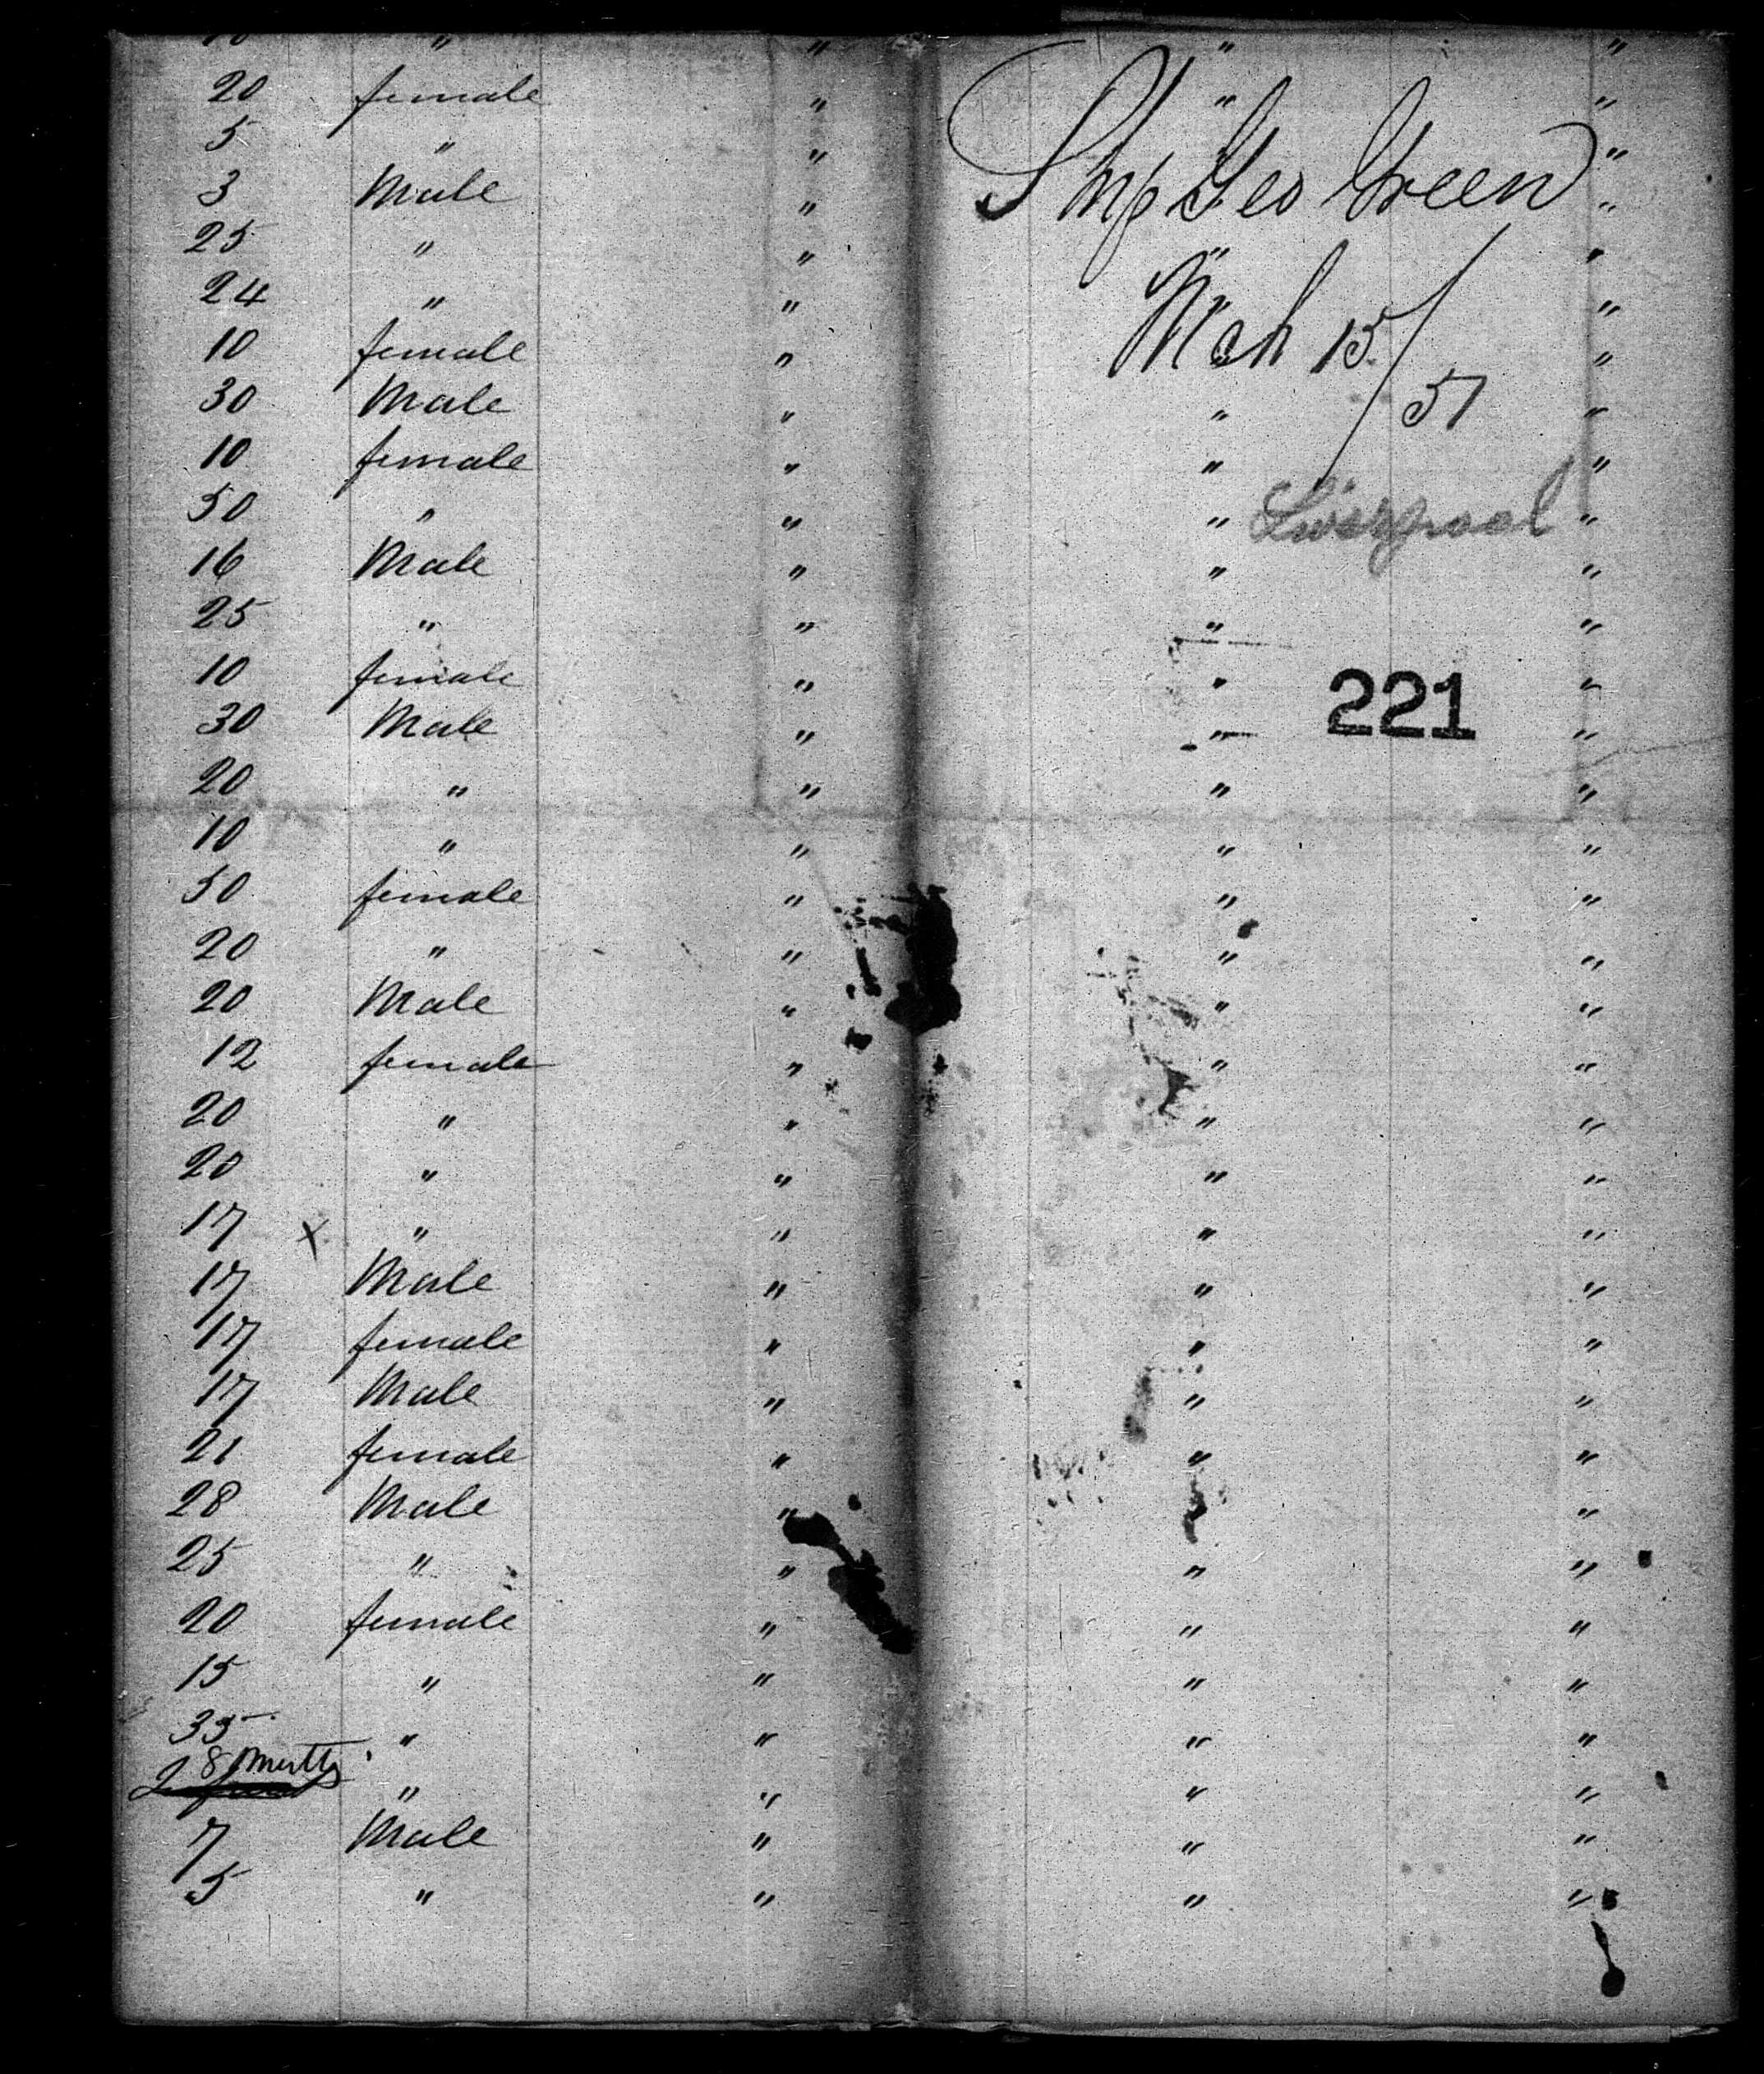 " " " "
20 female " " "
5 " " "
Ship Geo Green
3 Male " "
25 " " " "
24 " " "
Mch 15/51
10 female " "
30 Male " " "
10 female " " "
50 " " " "
Liverpool
16 Male " " "
25 " " " "
10 female " " "
221
30 Male " " "
20 " " " "
10 " " " "
50 female " " "
20 " " " "
20 Male " " "
12 female " " "
20 " " " "
20 " " " "
17 x " " " "
17 Male " " "
17 female " " "
17 Male " " "
21 female " " "
28 Male " " "
25 " " " "
20 female " " "
15 " " " "
35 " " " "
8 " " " "
7 Male " " "
5 " " " "